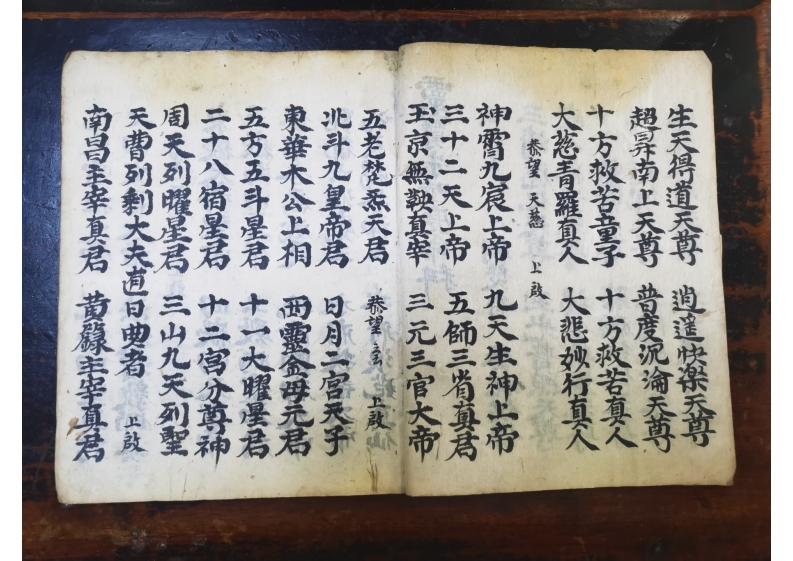 生天得道天尊 逍遥快楽天尊
超昇南上天尊 普度沉淪天尊
十方救苦童子 十方救苦真人
大慈青羅真人 大悲妙行真人
恭望 天慈 上啟
神霄九宸上帝 九天生神上帝
三十二天上帝 五師三省真君
玉京無鞅真宰 三元三官大帝
五老梵炁天君 恭望 上啟
北斗九皇帝君 日月二宮天子
東華木公上相 西靈金母元君
五方五斗星君 十一大曜星君
二十八宿星君 十二宮分尊神
周天列曜星君 三山九天列聖
天曹列剩大夫直日典者 上啟
南昌主宰真君 黄籙主宰真君